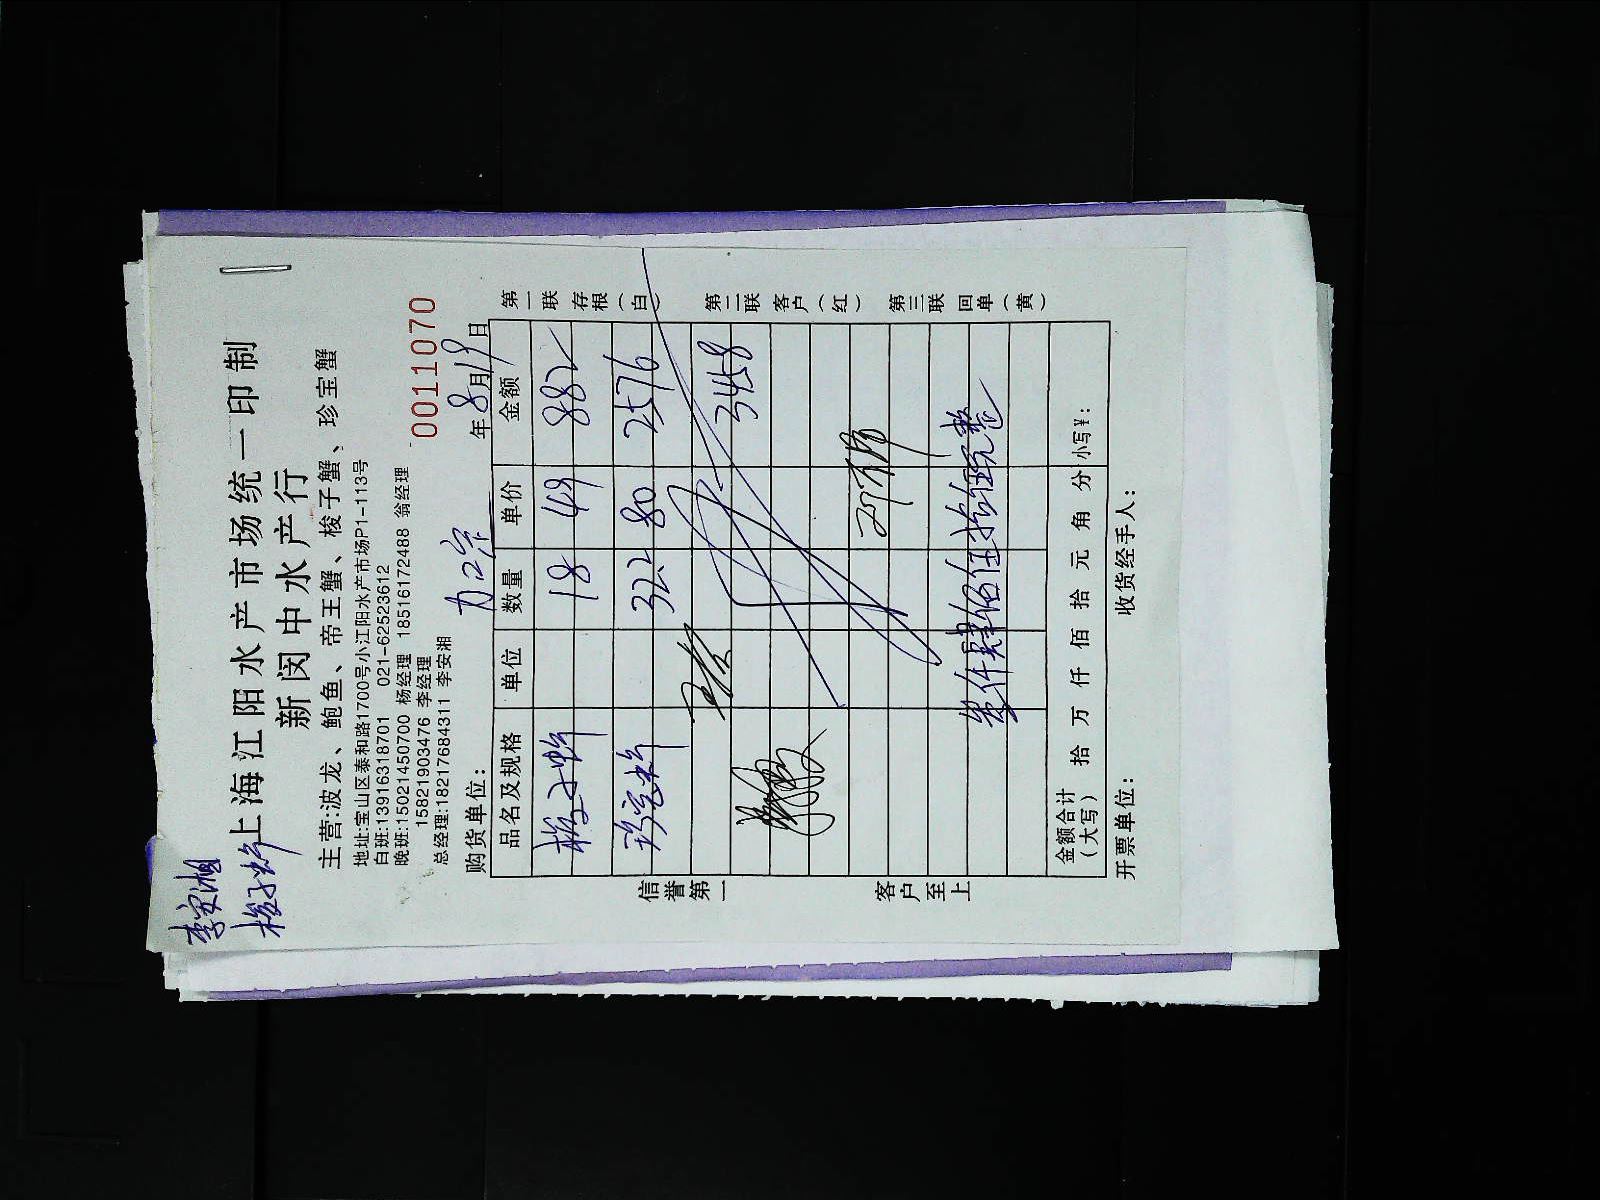 李安湘
梭子蟹
上海江阳水产市场统一印制
新闵中水产行
主营:波龙、鲍鱼、帝王蟹、梭子蟹、珍宝蟹
地址:宝山区泰和路1700号小江阳水产市场P1-113号
白班:13916318701 021-62523612
晚班:15021450700 杨经理 18516172488 翁经理
15821903476 李经理
总经理:18217684311 李安湘
0011070
购货单位: 年8月19日
品名及规格 单位 数量 单价 金额
梭子蟹 18 49 882
珍宝蟹 32.2 80 2576
3458
叁仟肆佰伍拾伍元整
金额合计(大写) 拾 万 仟 佰 拾 元 角 分 小写¥:
开票单位: 收货经手人:
第一联存根(白)
第二联客户(红)
第三联回单(黄)
信誉第一
客户至上